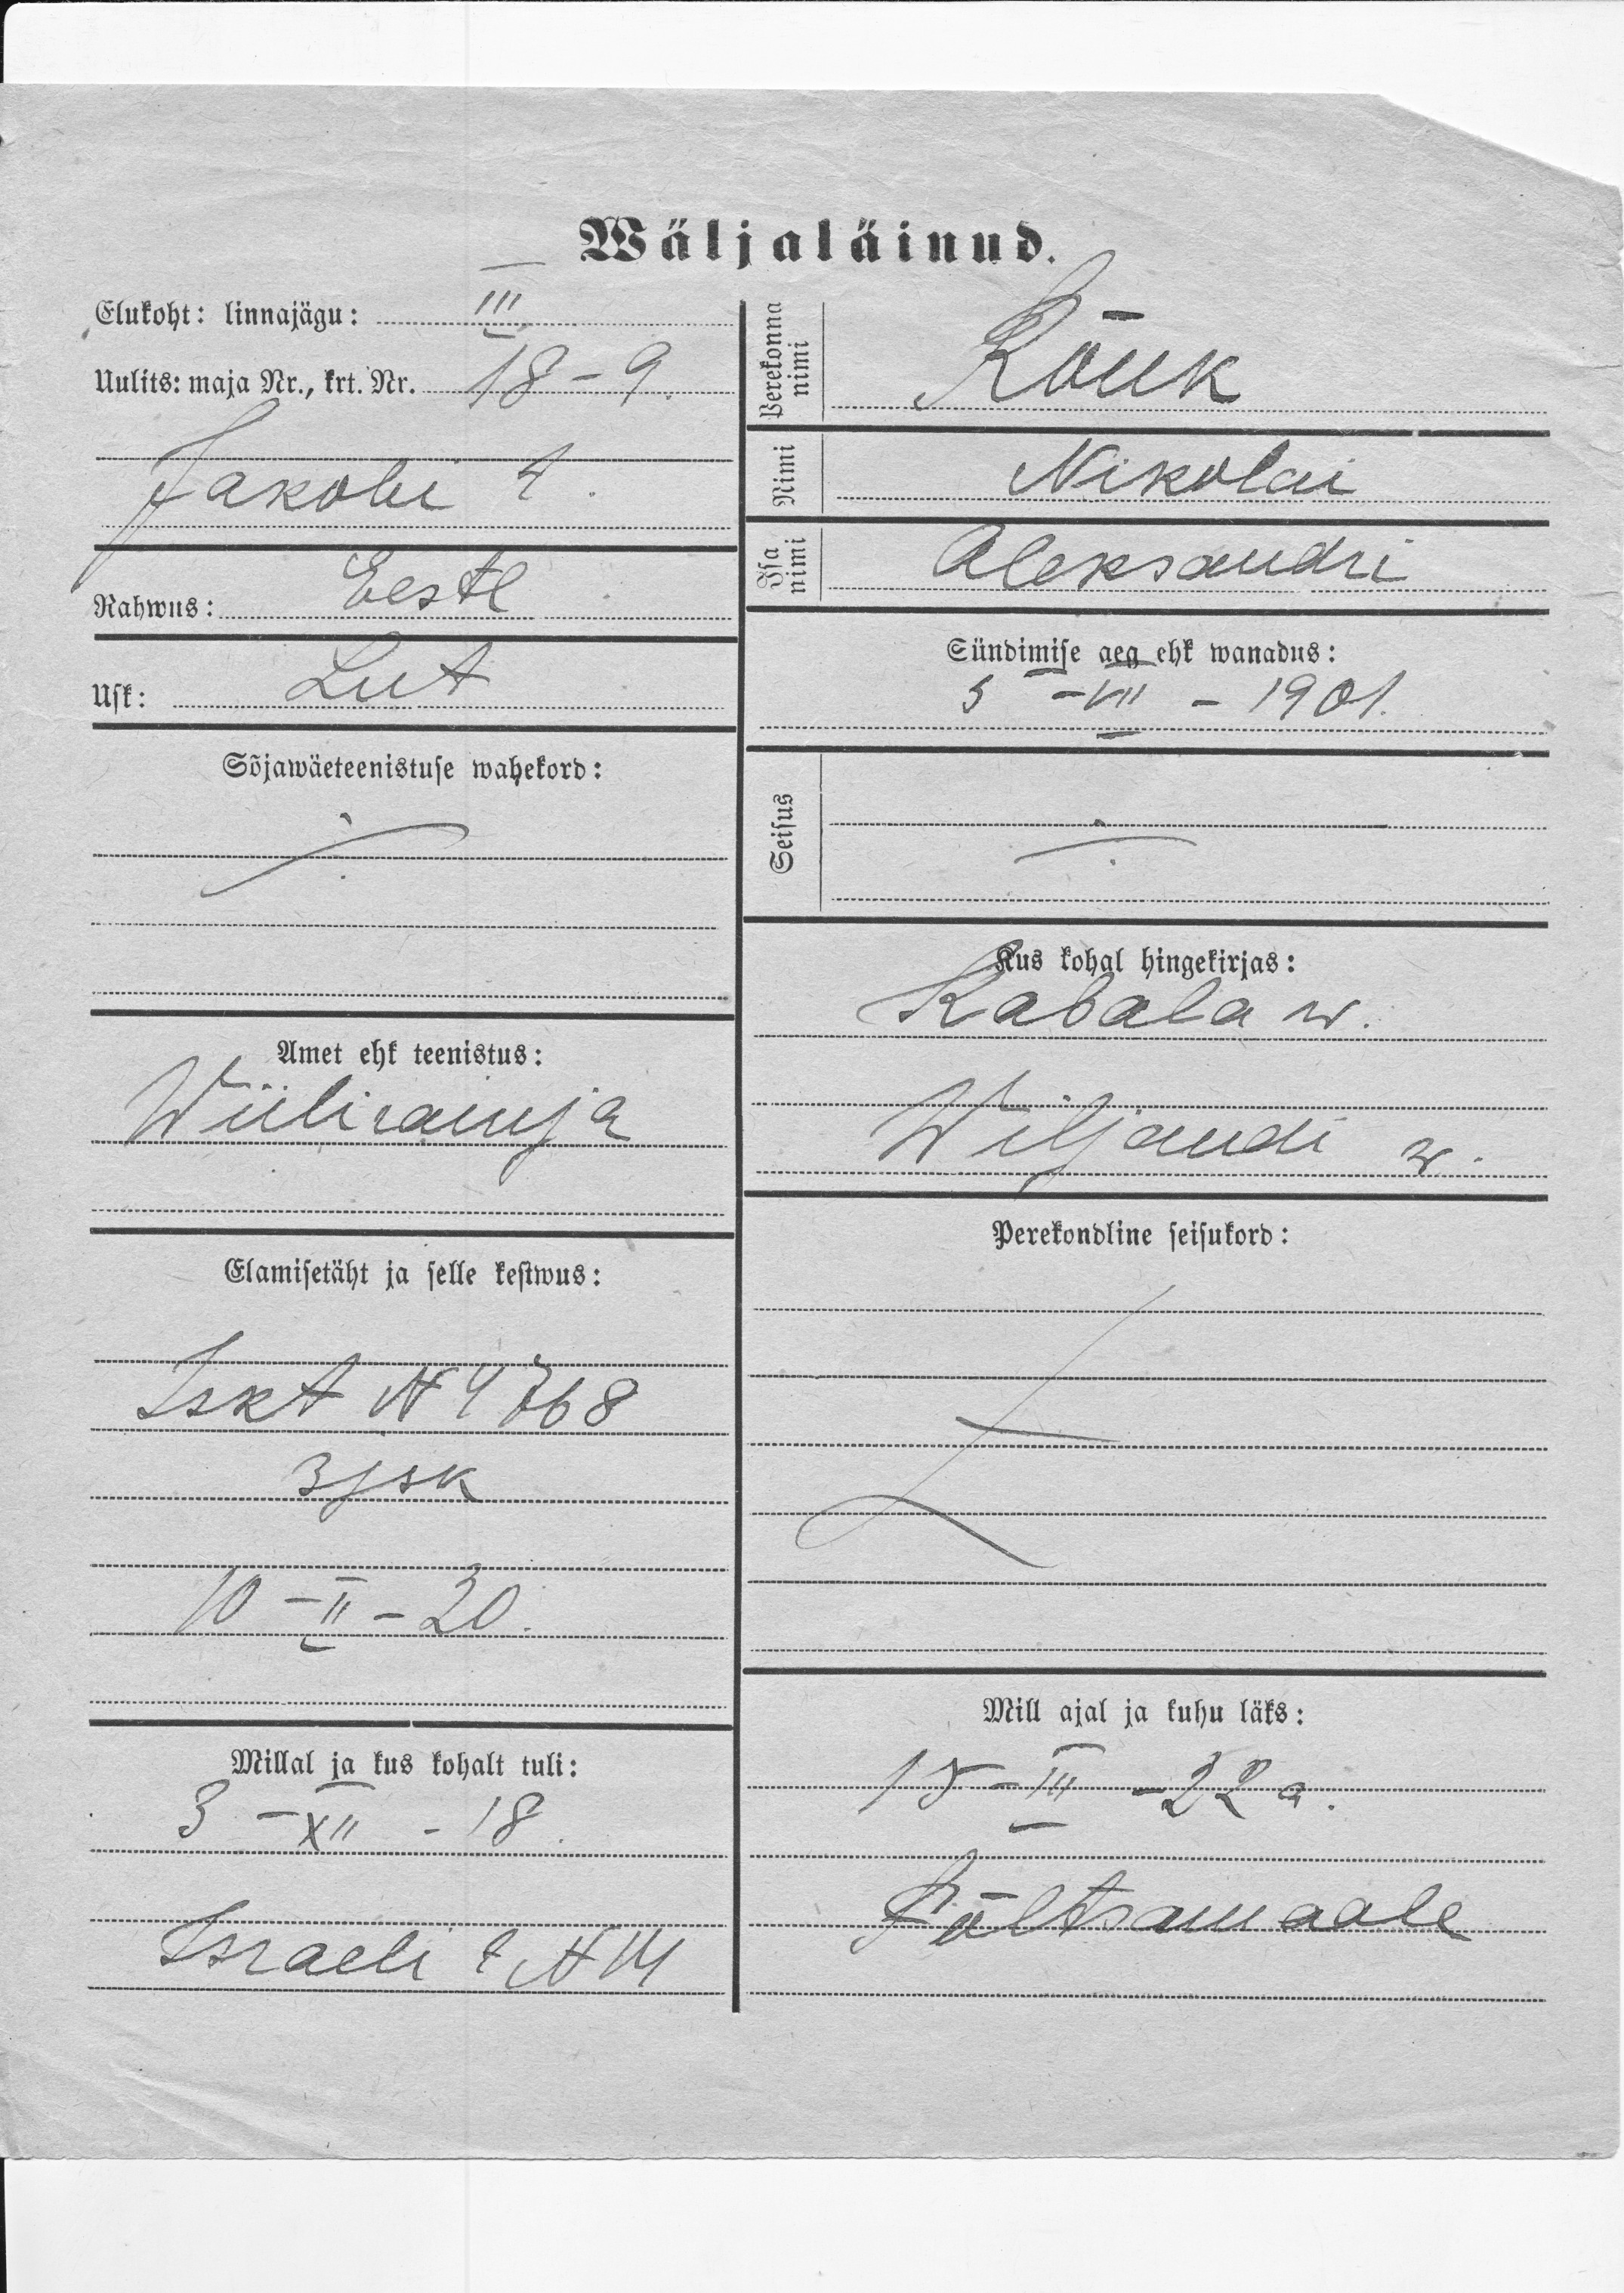 Wäljaläinud.
Elukoht: linnajägu: III
Uulits: maja Nr., krt. Nr. 18 – 9.
Jakobi t.
Rahwus: Eestl
Usk: Lut
Sõjawäeteenistuse wahekord:
Amet ehk teenistus:
Wiiliraiuja
Elamisetäht ja selle kestwus:
Iskt N 4768
3 jsk
10 – II – 20.
Millal ja kus kohalt tuli:
3 – XII – 18.
Israeli t N
Perekonna nimi Rõuk
Nimi Nikolai
Isa nimi Aleksandri
Sündimise aeg ehk wanadus:
5 – VII – 1901.
Seisus
Kus kohal hingekirjas:
Kabala w.
Wiljandi
Perekondline seisukord:
Mill ajal ja kuhu läks:
15 – III – 22 a.
Põltsamaale